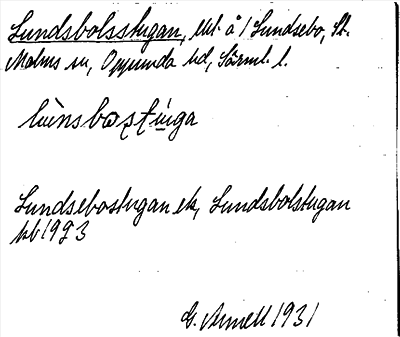 Lundsbolsstugan, åt å / Lundsebo, St.
Malms sn, Oppunda hd, Sörml. l.
lùnsbostúga
Lundsebostugan ek, Lundsbolstugan
kb 1983
G. Annell 1931